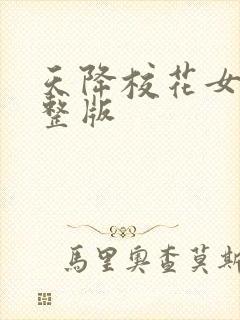 天降校花女
整版
馬里奧查莫斯